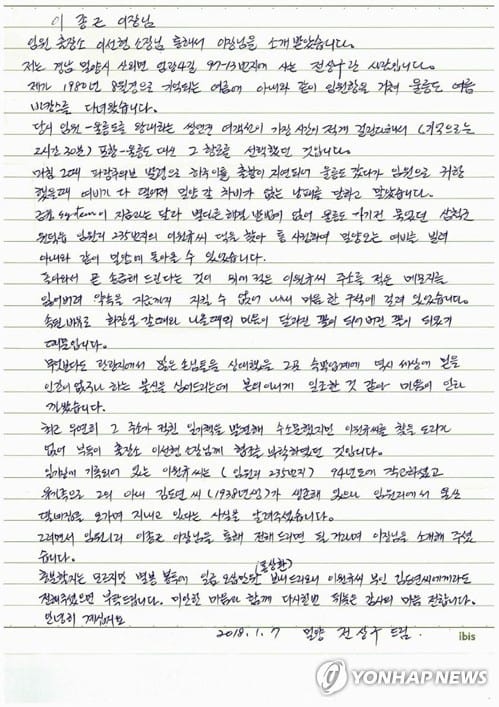 이 종근 이장님
임원 출장소 이선현 소장님 통해서 이장님을 소개 받았습니다.
저는 경남 밀양시 산외면 엄광4길 97-13번지에 사는 전상수란 시람입니다.
제가 1980년 8월경으로 기억되는 여름에 아내와 같이 임원항을 거쳐 울릉도 여름
바캉스를 다녀왔습니다.
당시 임원-울릉도를 왕래하는 쌍연연 여객선이 가장 시간이 적게 걸린다해서
2시간 30분) 포항-울릉도 대신 그 항로를 선택했던 것입니다.
그러던 2째 파랑주의보 발령으로 하루이틀 출발이 지연되어 울릉도 갔다가 임원으로 귀항
했을때 여비가 다 떨어져 밀양 갈 차비가 없는 낭패를 당하고 말았습니다.
system이 지금과는 달라 별다른 해결 방법이 없어 울릉도 가기전 묵었던 삼척군
원덕읍 임원리 235번지의 이원규씨 댁을 찾아 통사정하여 밀양오는 여비를 빌려
아내와 같이 밀양에 돌아올 수 있었습니다.
돌아와서 곧 송금해 드린다는 것이 되어 적은 이원규씨 주소를 적은 메모지를
잃어버려 약속을 지금까지 지킬 수 없어 내내 마음 한 구석에 걸려 있었습니다.
속된 말로 화장실 갈때와 나올때의 마음이 달라진 꼴이 되어버린 꼴이 되었기
때문입니다.
무엇보다도 관광지에서 많은 손님들을 상대했을 그곳 숙박업계에 역시 세상에 믿을
인간이 없구나 하는 불신을 심어드리는데 본의아니게 일조한 것 같아 마음이 안타
까웠습니다.
최근 우연히 그 주소가 적힌 일기책을 발견해 수소문했지만 이원규씨를 찾을 도리가
없어 부득이 출장소 이선현 소장님께 협조를 부탁하였던 것입니다.
일기장에 기록되어 있는 이원규씨는 (임원리 235번지) 94년도에 작고하셨고
유가족으로 그의 아내 김도연 씨 (1938년생)가 생존해 있으나 임원리에서
오가며 지내고 있다는 사실을 알려주셨습니다.
그러면서 임원1리 이종근 이장님을 통해 전해 드리면 될 거라며 이장님을 소개해 주셨
습니다.
충분할지는 모르지만 별봉 봉투에 일금 오십만원 (보상환) 보내드리오니 이원규씨 부인 김도연씨에게라도
전해주셨으면 부탁드립니다. 미안한 마음과 함께 다시한번 뒤늦은 감사의 마음 전합니다.
안녕히 계십시요
2018. 1. 7 밀양 전상수 드림.
ibis
YONHAP NEWS